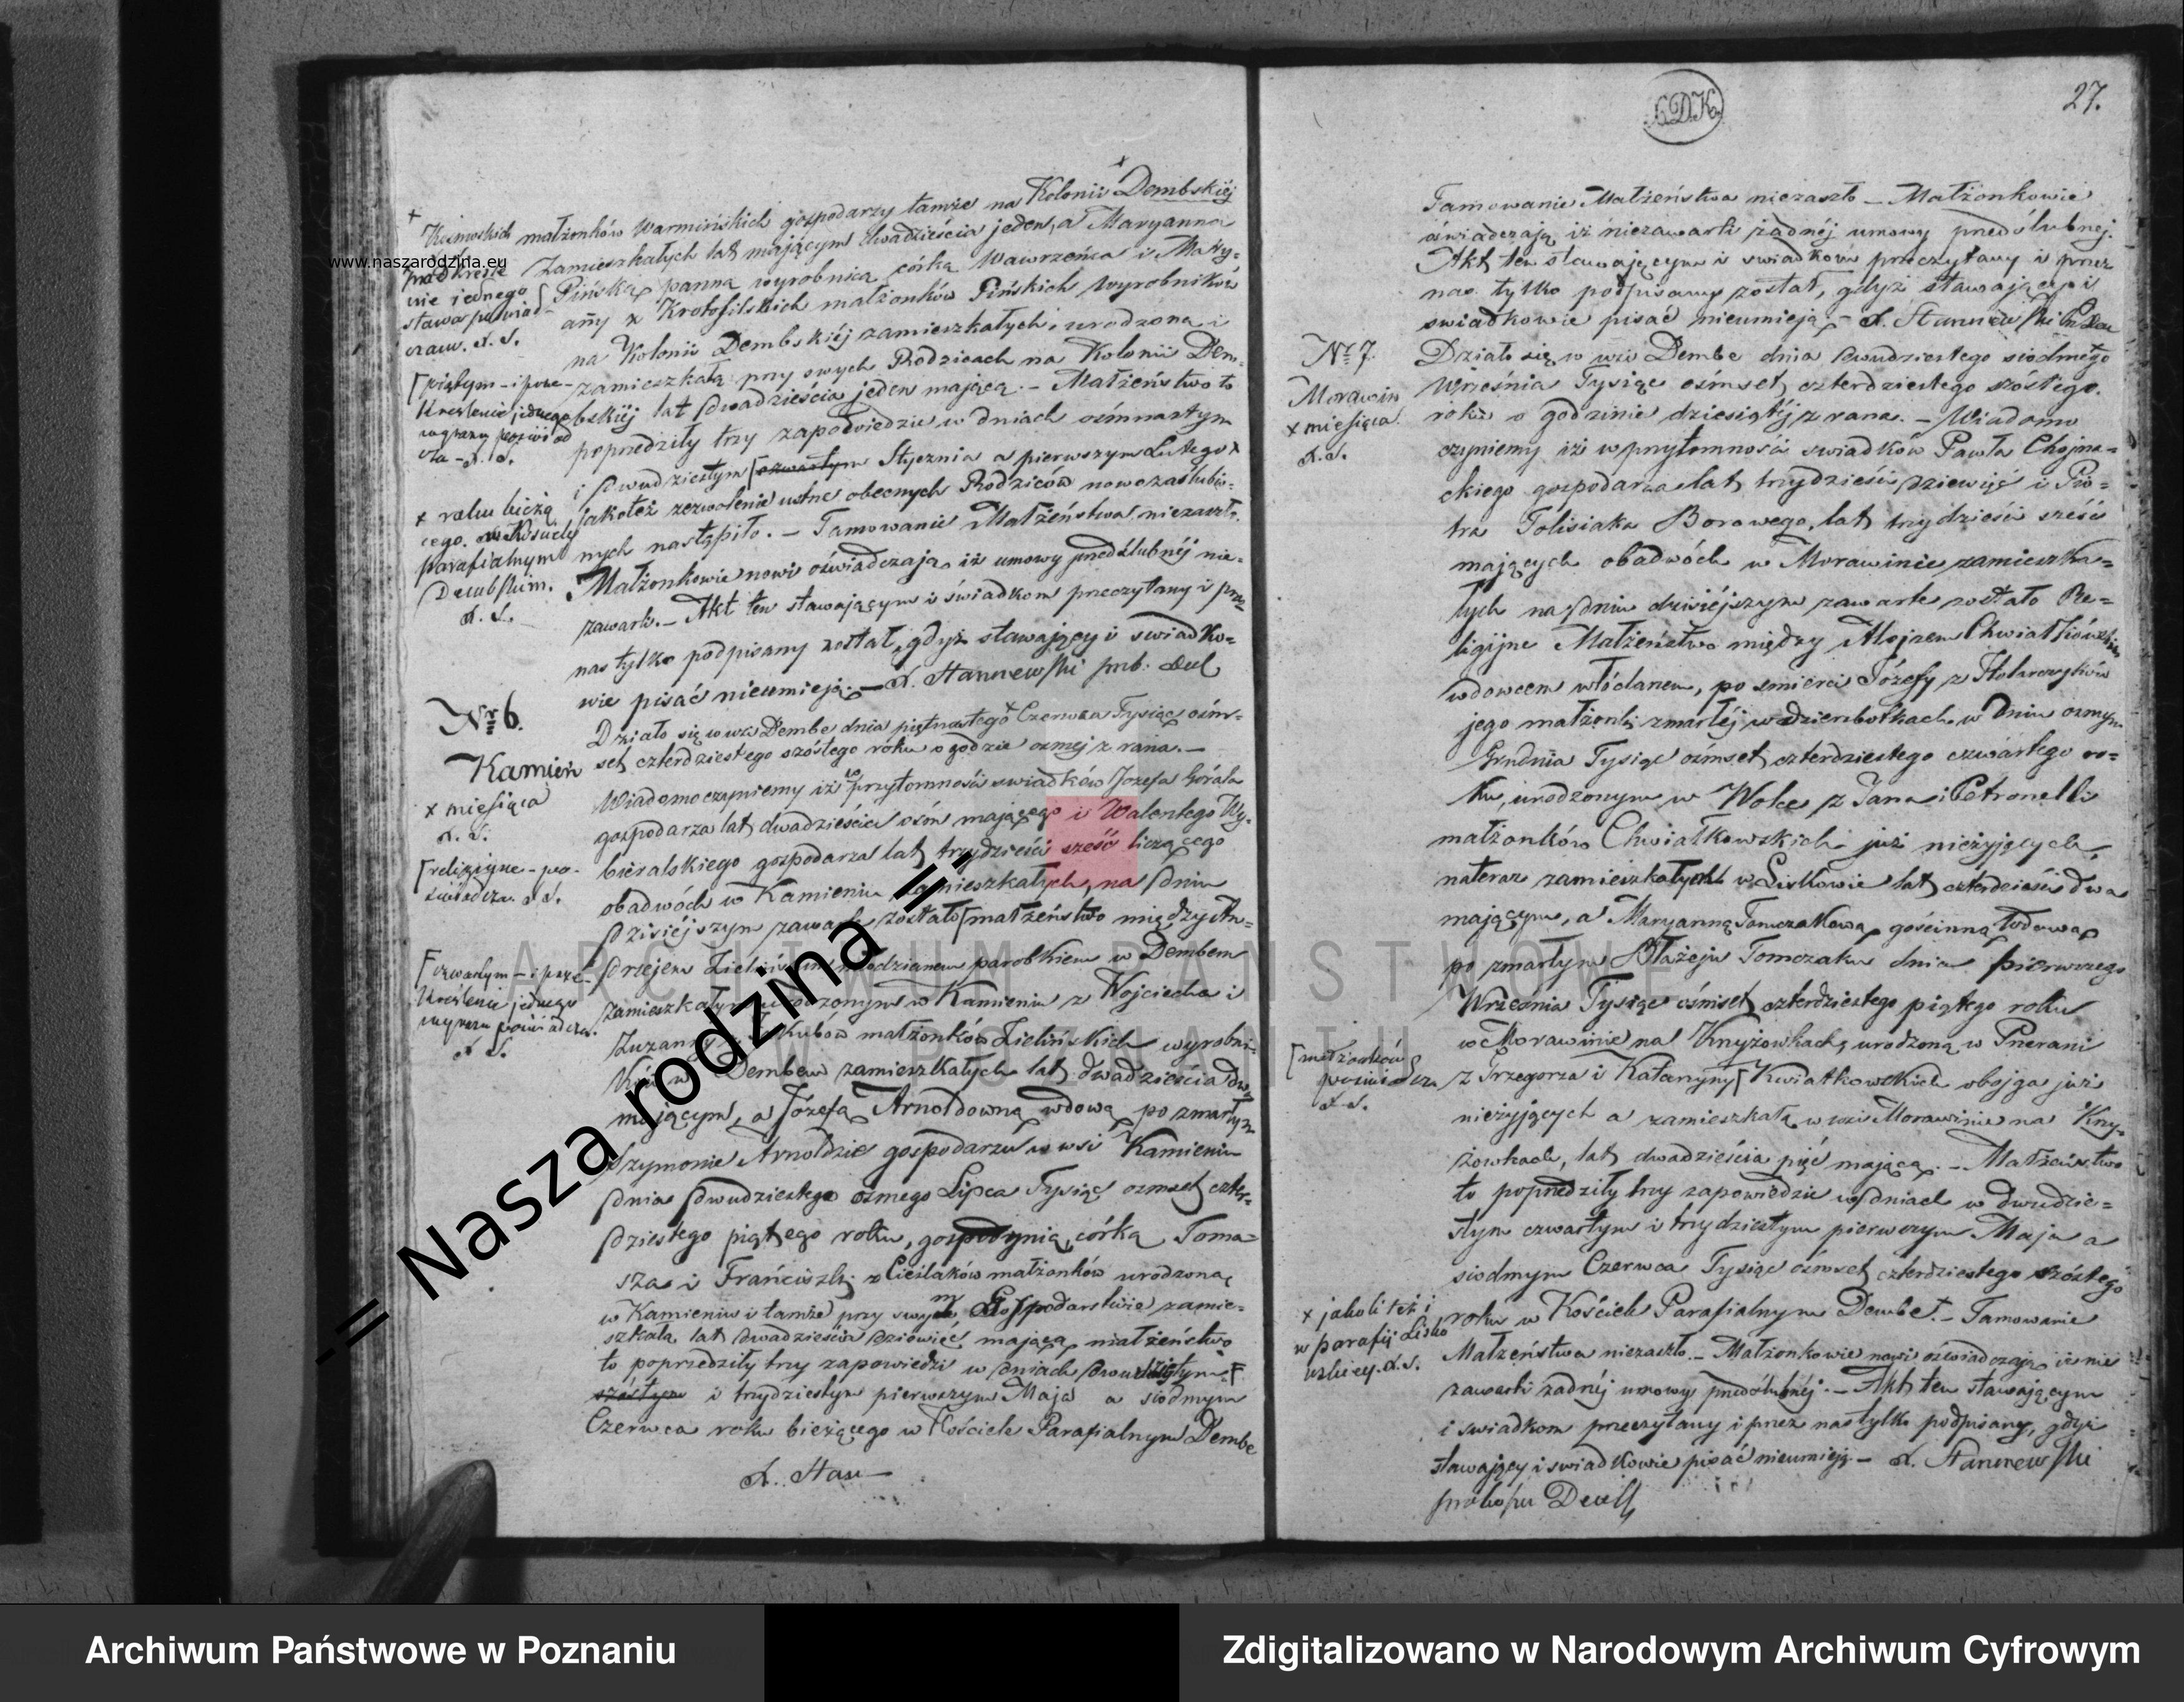 Kolonii Dembskiéj
małżonków Warmińskich gospodarzy tamże na
zamieszkałych lat mającym dwadzieścia jeden, a Maryanną
Pińską panną wyrobnicą córką Wawrzeńca i Mary-
anny z Krotofilskich małżonków Pińskich wyrobników
na Kolonii Dembskiéj zamieszkałych, urodzoną i
zamieszkałą przy swych Rodzicach na Kolonii Dem-
bskiéj lat dwadzieścia jeden mającą. – Małżeństwo to
poprzedziły trzy zapowiedzie w dniach ośmnastym
i dwudziestym czwartym Stycznia a pierwszym Lutego x
jakoteż zezwolenie ustne obecnych Rodziców nowozaślubio-
nych nastąpiło. – Tamowanie Małżeństwa niezaszło.
Małżonkowie nowi oświadczają, iż umowy przedślubnéj nie-
zawarli. – Akt ten stawającym i świadkom przeczytany i przez
nas tylko podpisany został, gdyż stawający i swiadko-
wie pisać nieumieją. –
słowa poświad-
x roku bieżą
cego w Kościele
parafialnym
Dembskim.
Nr 6.
Kamień
x miesiąca
[religijne – po-
świadcza
[czwartym – i prze-
kreślenie jednego
wyrazu poświadcza.
Działo się w wsi Dembe dnia piętnastego x Czerwca Tysiąc ośm-
set czterdziestego szóstego roku o godzinie osmej z rana. –
Wiadomo czyniemy iż w przytomności swiadków Józefa Górala
gospodarza lat dwadzieścia ośm mającego i Walentego Wy-
bieralskiego gospodarza lat trzydzieści sześć liczącego
obadwóch w Kamieniu zamieszkałych, na dniu
dzisiéjszym zawarte zostało [małżeństwo między An-
drzejem Zielińskim młodzianem parobkiem w Dembem
zamieszkałym urodzonym w Kamieniu z Wojciecha i
Zuzanny z Jakubów małżonków Zielińskich wyrobni-
ków w Dembem zamieszkałych lat dwadzieścia dwa
mającym, a Józefą Arnoldowną wdową po zmarłym
Szymonie Arnoldzie gospodarzu w wsi Kamieniu
dnia dwudziestego ósmego Lipca Tysiąc osmset czter-
dziestego piątego roku, gospodynią, córką Toma-
sza i Franciszki z Cieślaków małżonków urodzoną
w Kamieniu i tamże przy swym Gospodarstwie zamie-
szkałą lat dwadzieścia dziewięć mającą, małżeństwo
to poprzedziły trzy zapowiedzi w dniach dwudziestym [
szóstym i trzydziestym pierwszym Maja a siódmym
Czerwca roku bieżącego w Kościele Parafialnym Dembe
27.
Tamowanie Małżeństwa niezaszło – Małżonkowie
oświadczają iż niezawarli żadnéj umowy przedślubnej.
Akt ten stawającym i swiadkom przeczytany i przez
nas tylko podpisany został, gdyż stawający i
swiadkowie pisać nieumieją. –
Nr 7.
Morawin
x miesiąca
Działo się w wsi Dembe dnia dwudziestego siodmego
Września Tysiąc ośmset czterdziestego szóstego.
roku o godzinie dziesiątéj z rana. – Wiadomo
czyniemy iż w przytomności swiadków Pawła Chojna-
ckiego gospodarza lat trzydzieści dziewięć i Pio-
tra Tolisiaka Borowego, lat trzydzieści sześć
mających obadwóch w Morawinie zamieszka-
łych na dniu dzisiéjszym zawarte zostało Re-
ligijne Małżeństwo między Alojzem Chwiałkowskim
wdowcem włóclanem, po smierci Józefy z Stolarczyków
jego małżonki zmarłéj w Dzierzbotkach w Dniu osmym
Grudnia Tysiąc ośmset czterdziestego czwartego ro-
ku, urodzonym w Wolce z Jana i Petronelli
małżonków Chwiałkowskich już nieżyjących,
nateraz zamieszkałych w Liskowie lat czterdzieści dwa
mającym, a Maryanną Tomczakową gościnną wdową
po zmarłym Błażeju Tomczaku dnia pierwszego
Września Tysiąc ośmset czterdziestego piątego roku
w Morawinie na Knyżowkach, urodzoną w
z Grzegorza i Katarzyny [Kwiatkowskich obojga już
nieżyjących a zamieszkałą w wsi Morawinie na Kny-
żowkach, lat dwadzieścia pięć mającą. – Małżeństwo
to poprzedziły trzy zapowiedzie w dniach w dwudzie-
stym czwartym i trzydziestym pierwszym Maja a
siodmym Czerwca Tysiąc ośmset czterdziestego szóstego
roku w Kościele Parafialnym Dembe x. – Tamowanie
Małżeństwa niezaszło. – Małżonkowie nowi oświadczają iż nie
zawarli żadnéj umowy przedślubnéj. – Akt ten stawającym
i swiadkom przeczytany i przez nas tylko podpisany, gdyż
stawający i swiadkowie pisać nieumieją –
[małżonków
x jakoliteż i
w parafii Lisko
www.naszarodzina.eu
-= Nasza rodzina =-
ARCHIWUM PAŃSTWOWE
W POZNANIU
Archiwum Państwowe w Poznaniu
Zdigitalizowano w Narodowym Archiwum Cyfrowym